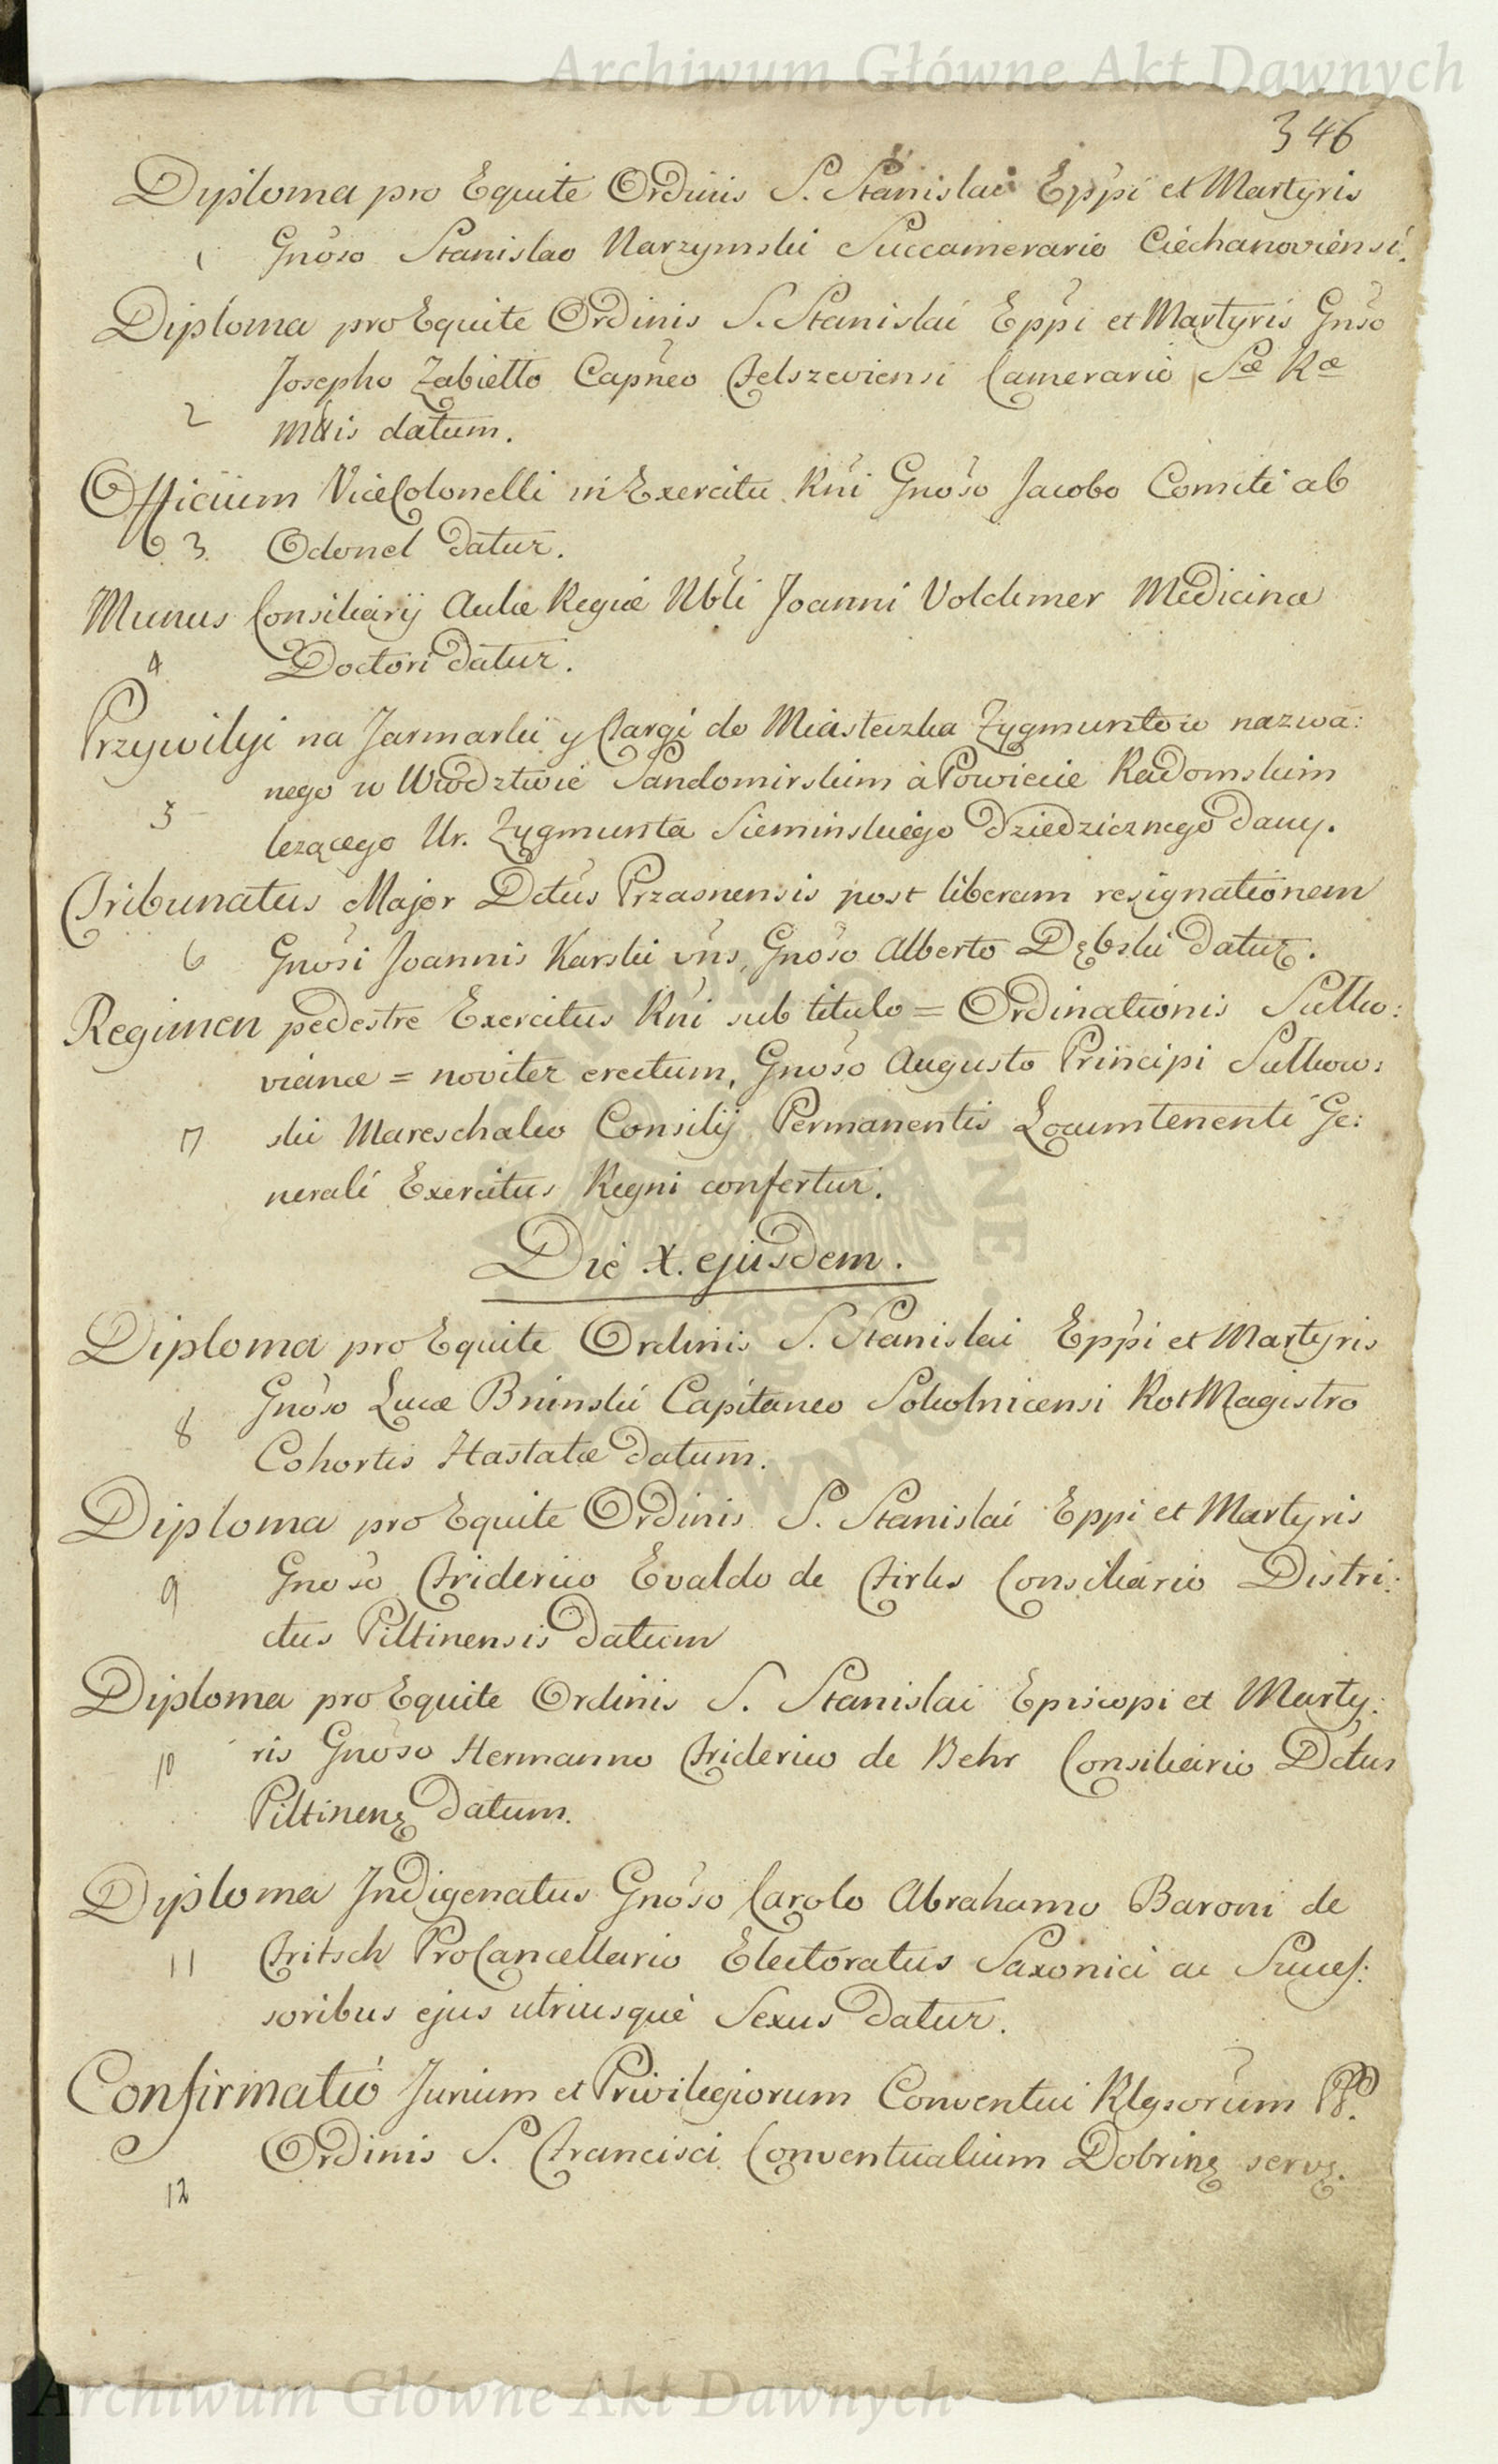 Archiwum Główne Akt Dawnych
346
Diploma pro Equite Ordinis S. Stanislai Eppi et Martyris
1 Gnoso Stanislao Narzymski Succamerario Ciechanoviensi.
Diploma pro Equite Ordinis S. Stanislai Eppi et Martyris Gnso
Josepho Zabiełło Capneo Telszeviensi Camerario Sæ Ræ
2 Mttis datum.
Officium ViceColonelli in Exercitu Rni Gnoso Jacobo Comiti ab
3. Odonel datur.
Munus Consiliarij Aulæ Regiæ Nbli Joanni Voldimer Medicinæ
4 Doctori datur.
Przywiley na Jarmarki y Targi do Miasteczka Zygmuntow nazwa:
nego w Wwodztwie Sandomirskim à Powiecie Radomskim
5 lezącego Ur. Zygmunta Siemińskiego dziedzicznego dany.
Tribunatus Major Dctus Przasnensis post liberam resignationem
6 Gnosi Joannis Karski vns, Gnoso Alberto Dębski datur.
Regimen pedestre Exercitus Rni sub titulo = Ordinationis Sulko:
vianæ = noviter erectum, Gnoso Augusto Principi Sułkow:
7 ski Mareschalco Consilij Permanentis Locumtenenti Ge:
nerali Exercitus Regni confertur.
Die X. ejusdem.
Diploma pro Equite Ordinis S. Stanislai Eppi et Martyris
Gnoso Lucæ Bninski Capitaneo Sokolnicensi RotMagistro
8 Cohortis Hastatæ datum.
Diploma pro Equite Ordinis S. Stanislai Eppi et Martyris
9 Gnoso Friderico Evaldo de Firks Consiliario Distri:
ctus Piltinensis datum
Diploma pro Equite Ordinis S. Stanislai Episcopi et Marty:
10 ris Gnoso Hermanno Friderico de Behr Consiliario Dctus
Piltinens datum.
Diploma Indigenatus Gnoso Carolo Abrahamo Baroni de
11 Fritsch ProCancellario Electoratus Saxonici ac Succes:
soribus ejus utriusque Sexus datur.
Confirmatio Jurium et Privilegiorum Conventui Rlgsorum PP.
Ordinis S. Francisci Conventualium Dobrins servs.
12
Archiwum Główne Akt Dawnych